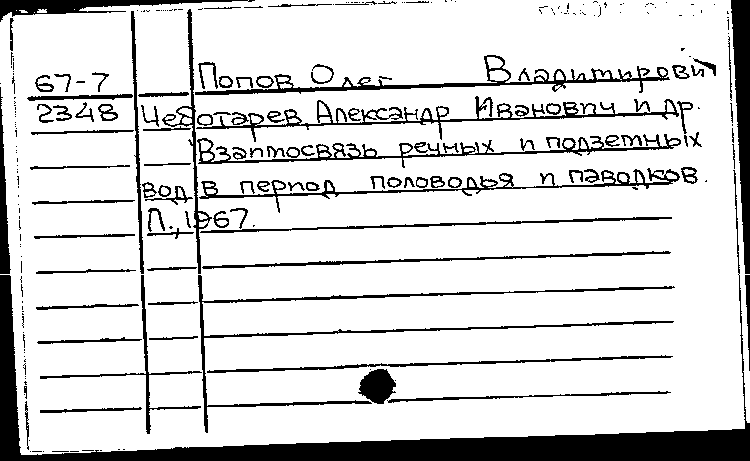 67-7 Попов, Олег Владимирович
2348 Чеботарев, Александр Иванович и др.
Взаимосвязь речных и подземных
вод в период половодья и паводков.
Л., 1967.